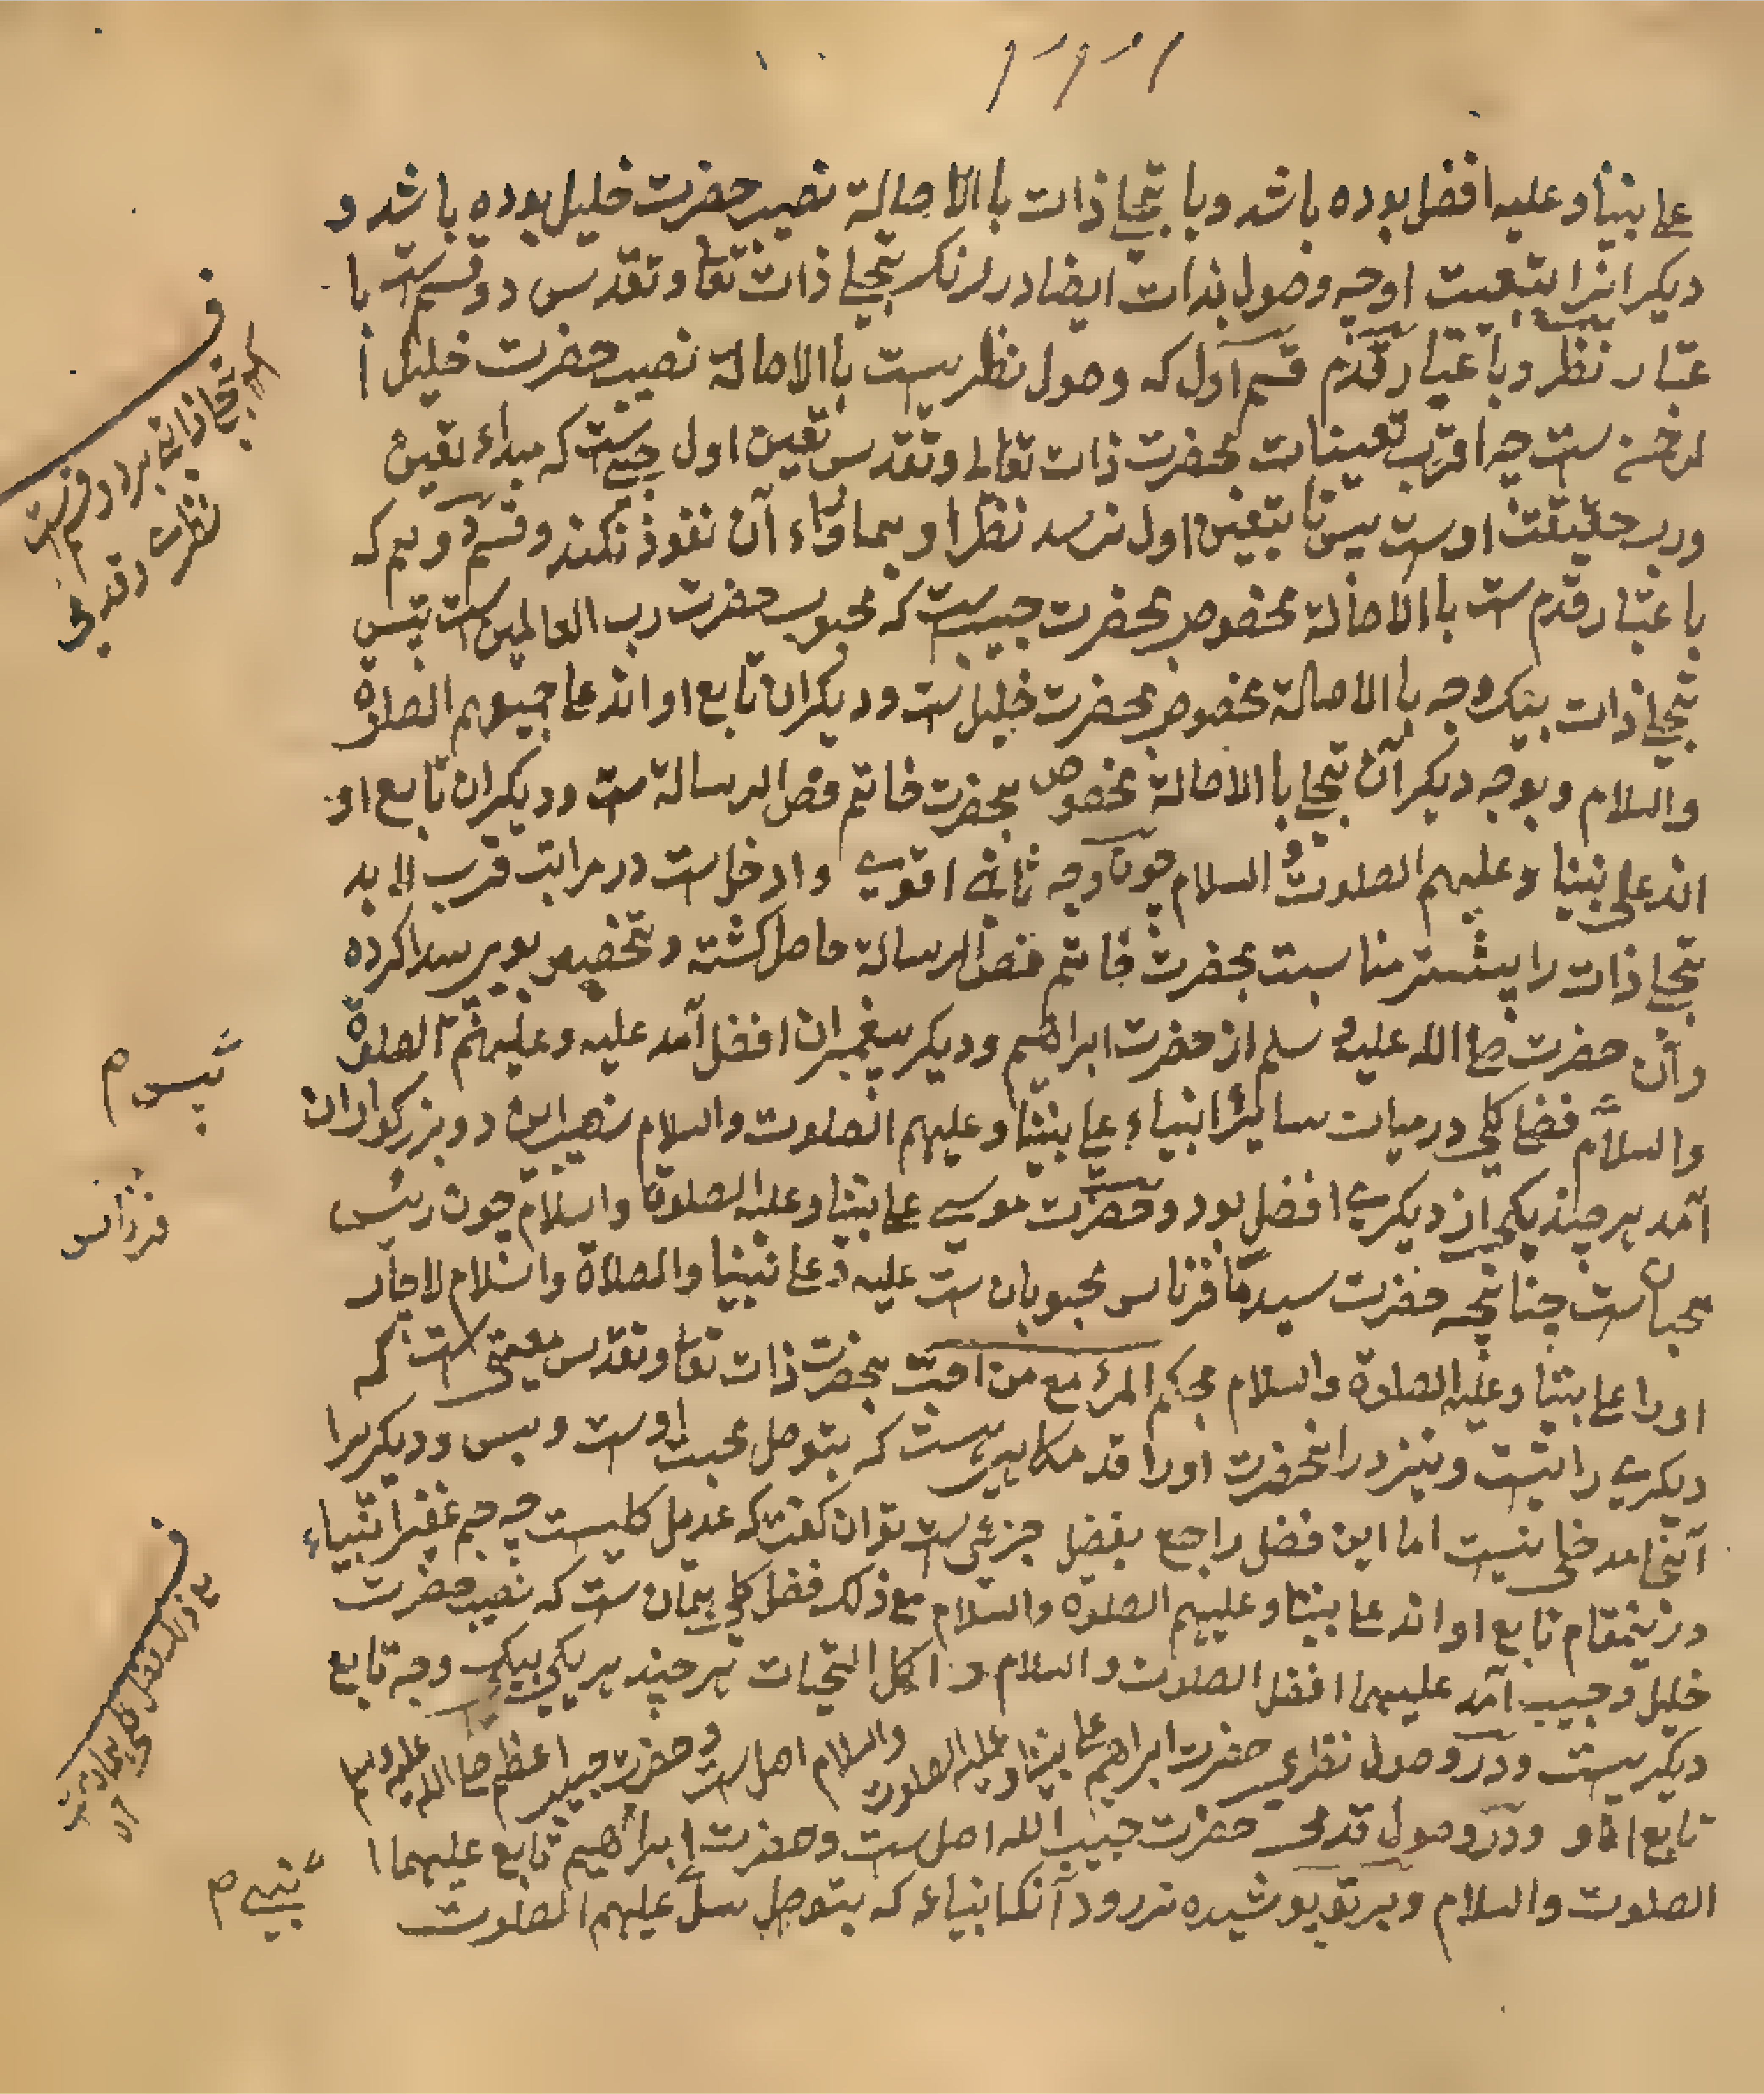 علی نبینا و علیه افضل بوده باشد و یا تجلی ذات با الاصالة نصیب حضرت خلیل بوده باشد و
دیکرانرا بتبعیت او چه وصول بذات ایضا در رنک تجلی ذات تعا و تقدس دو قسم ست با
عتبار نظر و با عتبار قدم قسم اول که وصول نظریست با الاصالة نصیب حضرت خلیل ا
لرحمن ست چه اقرب تعینات بحضرت ذات تعالی و تقدس تعین اول حبی ست که مبداء تعین
و رب حقیقت اوست پس تا بتعین اول نرسد نظر او بماوراء آن نفوذ نکند و قسم دویم که
با عتبار قدم ست با الاصالة مخصوص بحضرت حبیب ست که محبوب حضرت رب العالمین ست پس
تجلی ذات بیک وجه با الاصالة مخصوص بحضرت خلیل ست و دیکران تابع او اند علی جمیعهم الصلوة
والسلام و بوجه دیکر آن تجلی با الاصالة مخصوص بحضرت خاتم فص الرسالة ست و دیکران تابع او
اند علی نبینا و علیهم الصلوت السلام چون وجه ثانی اقوی و ادخل ست در مراتب قرب لا بد
تجلی ذات را بیشتر مناسبت بحضرت خاتم فص الرسالة حاصل کشته و تخصیص بوی پیدا کرده
و آن حضرت صلی الله علیه و سلم از حضرت ابراهیم و دیکر پیغمبران افضل آمد علیه و علیهم الصلوة
والسلام فضل کلی درمیان سایر انبیاء علی نبینا و علیهم الصلوت والسلام نصیب این دو بزرکواران
آمد هر چند یکی از دیکری افضل بود و حضرت موسی علی نبینا و علیه الصلوة والسلام چون رئیس
محبان ست چنانچه حضرت سید ما فرناس محبوبان ست علیه و علی نبینا والصلاة والسلام لاجار
او را علی نبینا و علیه الصلوة والسلام بحکم المرء مع من احب بحضرت ذات تعا و تقدس معیتی ست که
دیکری را نیست و نیز در انحضرت او را قدمکاهی ست که بتوصل محبت اوست و بس و دیکریرا
آنجا مدخلی نیست اما این فضل راجع بفضل جزئی ست توان کفت که عدیل کلیست چه جم غفیر انبیاء
درینمقام تابع او اند علی نبینا و علیهم الصلوة والسلام مع ذلک فضل کلی همان ست که نصیب حضرت
خلیل و حبیب آمد علیهما افضل الصلوت والسلام و اکمل التحیات هر چند هر یکی بیک وجه تابع
دیکریست و در وصول نظری حضرت ابراهیم علی نبینا و علیه الصلوت والسلام اصل ست و حضرت حبیب اعظم صلی الله علیه و سلم
تابع او و در وصول قدمی حضرت حبیب الله اصل ست و حضرت ابراهیم تابع علیهما ا
الصلوت والسلام و بر تو پوشیده نرود آنکه انبیاء که بتوصل سل علیهم الصلوت
ف
تجلی ذاتی بر دو قسم ست
نظری و قدمی
ف
مع ذلک فضل کلی همان ست